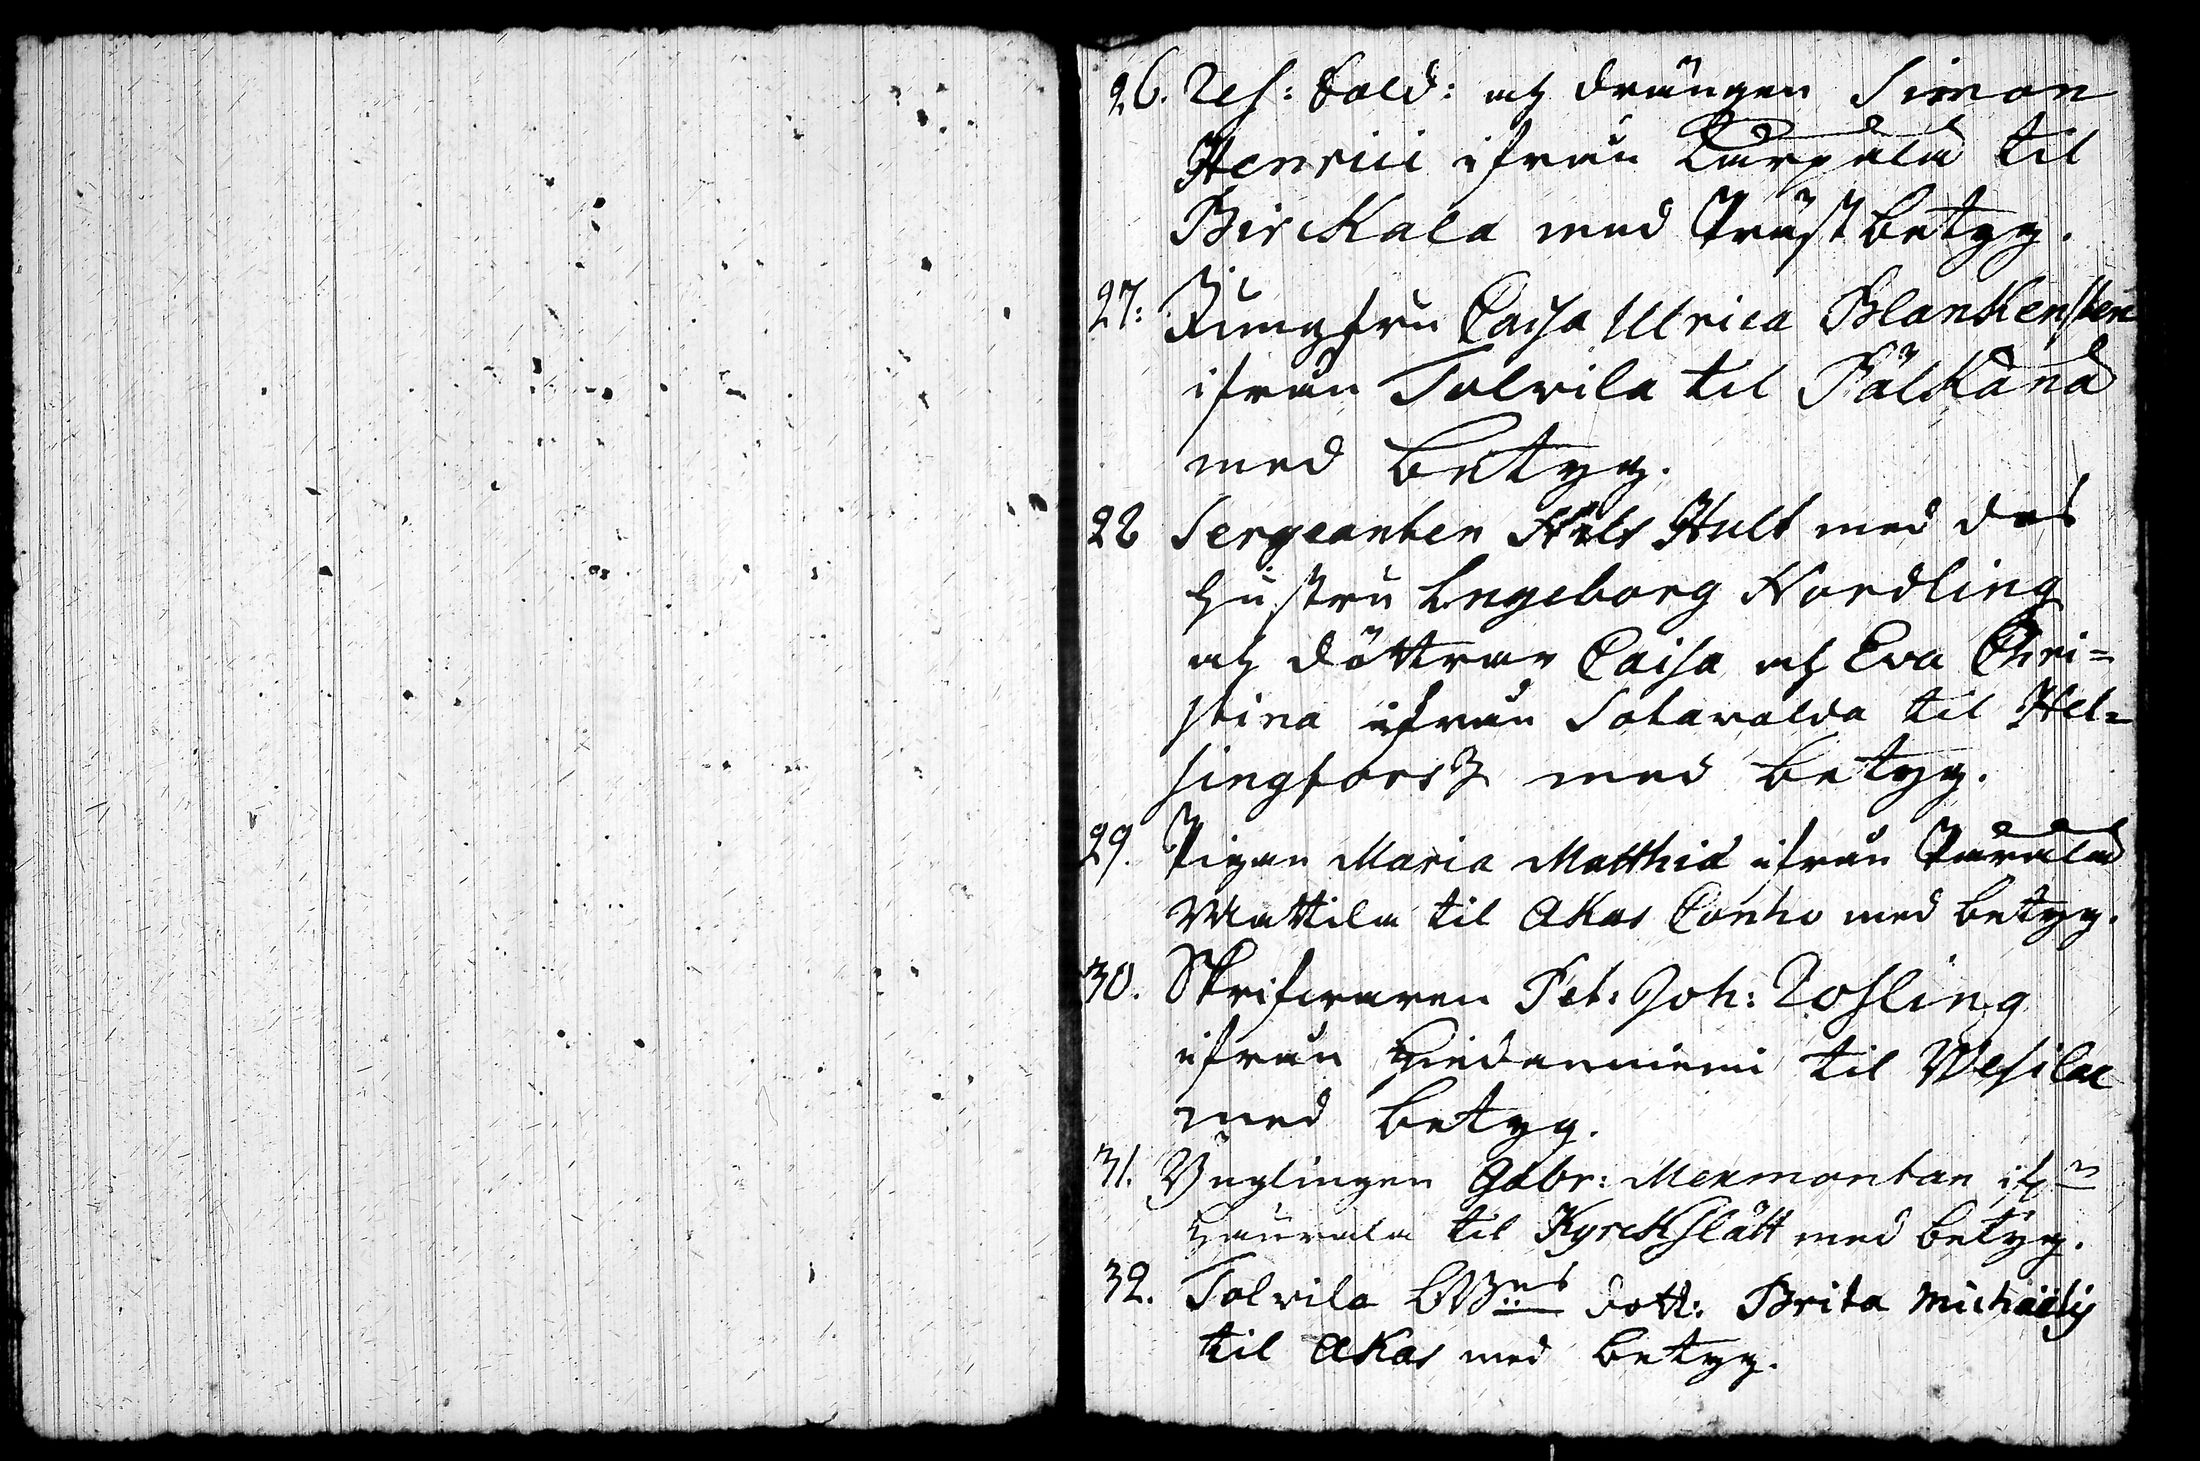 26. Res: Sold: och drängen Simon
Henrici ifrån Lårpälä til
Birckala med Präst betyg.
27: Jungfru Caisa Ulrica Blankensten
ifrån Tolvila til Pälkänä
med betyg.
28 Sergeanten Nils Hult med des
hustru Engeborg Nordling
och döttrar Caisa och Eva Chri=
stina ifrån Sotavalda til Hel=
singforss med betyg.
29. Pigan Maria Matthiæ ifrån
Mattila til Akas Conho med betyg.
30. Skrifvaren Pet: Joh: Rosling
ifrån Hiedanniemi til Wesilax
med betyg.
31. Ynglingen Gabr: Mexmontan ifrn
Haurala til Kyrckslätt med betyg.
32. Tolvila dott: Brita Michaëlis
til Akas med betyg.